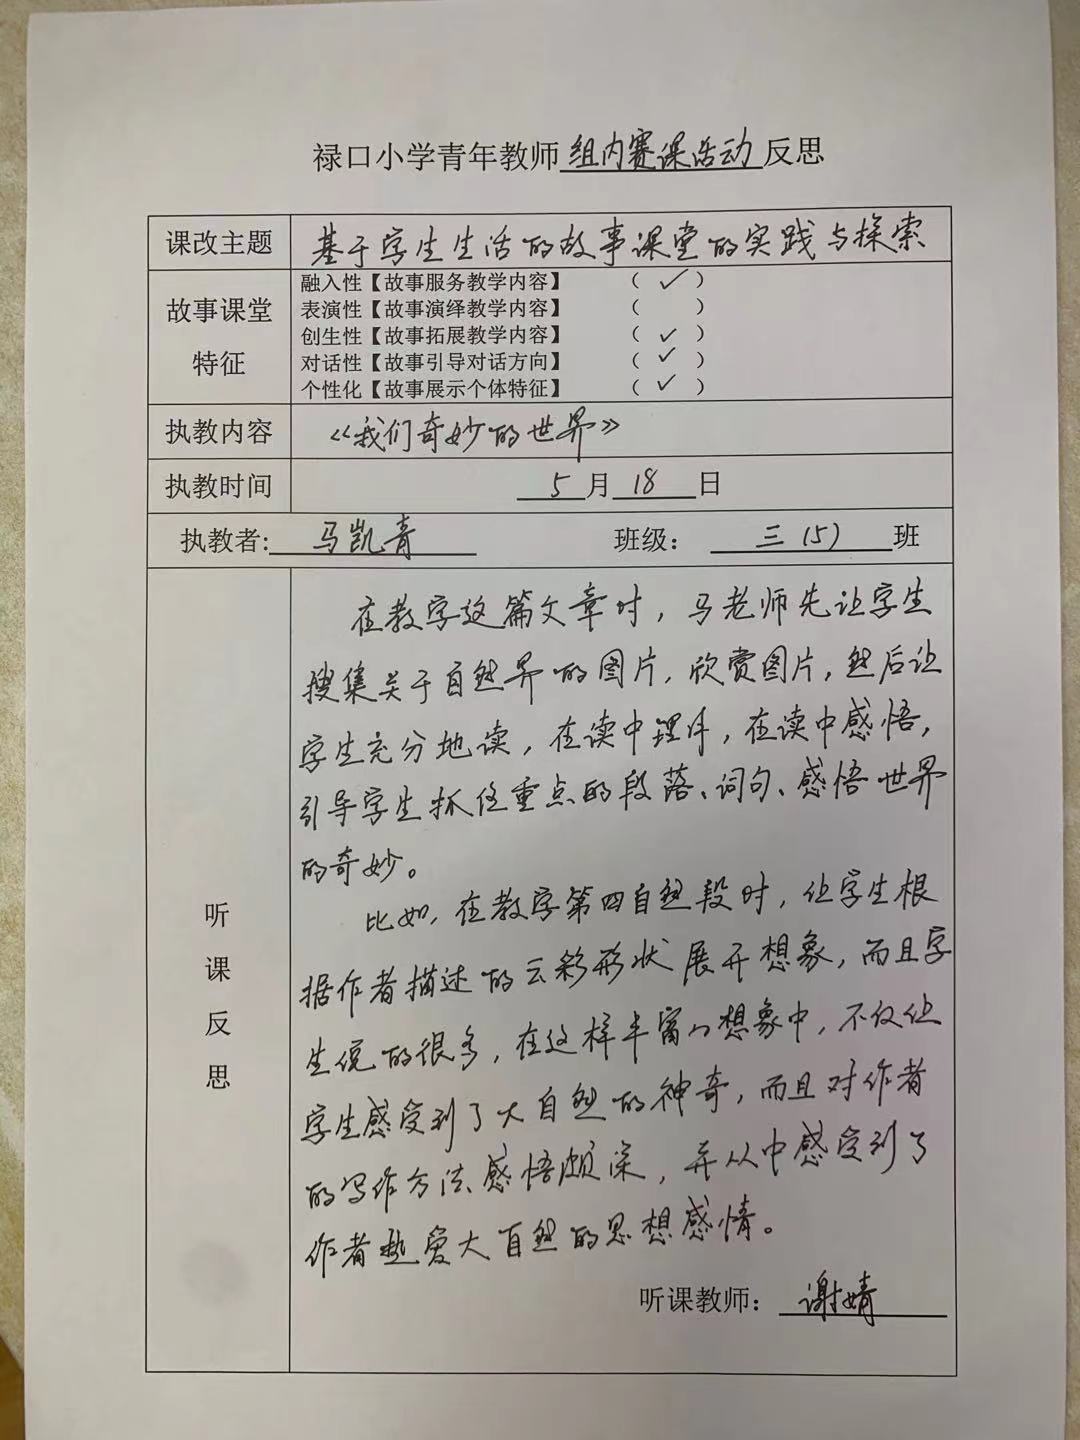 禄口小学青年教师组内赛课活动反思
课改主题 基于学生生活的故事课堂的实践与探索
故事课堂特征
融入性【故事服务教学内容】 （ ✓ ）
表演性【故事演绎教学内容】 （ ）
创生性【故事拓展教学内容】 （ ✓ ）
对话性【故事引导对话方向】 （ ✓ ）
个性化【故事展示个体特征】 （ ✓ ）
执教内容 《我们奇妙的世界》
执教时间 5月18日
执教者：马凯青 班级：三（5）班
听课反思
在教学这篇文章时，马老师先让学生
搜集关于自然界的图片，欣赏图片，然后让
学生充分地读，在读中理解，在读中感悟，
引导学生抓住重点的段落、词句、感悟世界
的奇妙。
比如，在教学第四自然段时，让学生根
据作者描述的云彩形状展开想象，而且学
生说的很多，在这样丰富的想象中，不仅让
学生感受到了大自然的神奇，而且对作者
的写作方法感悟颇深，并从中感受到了
作者热爱大自然的思想感情。
听课教师：谢婧